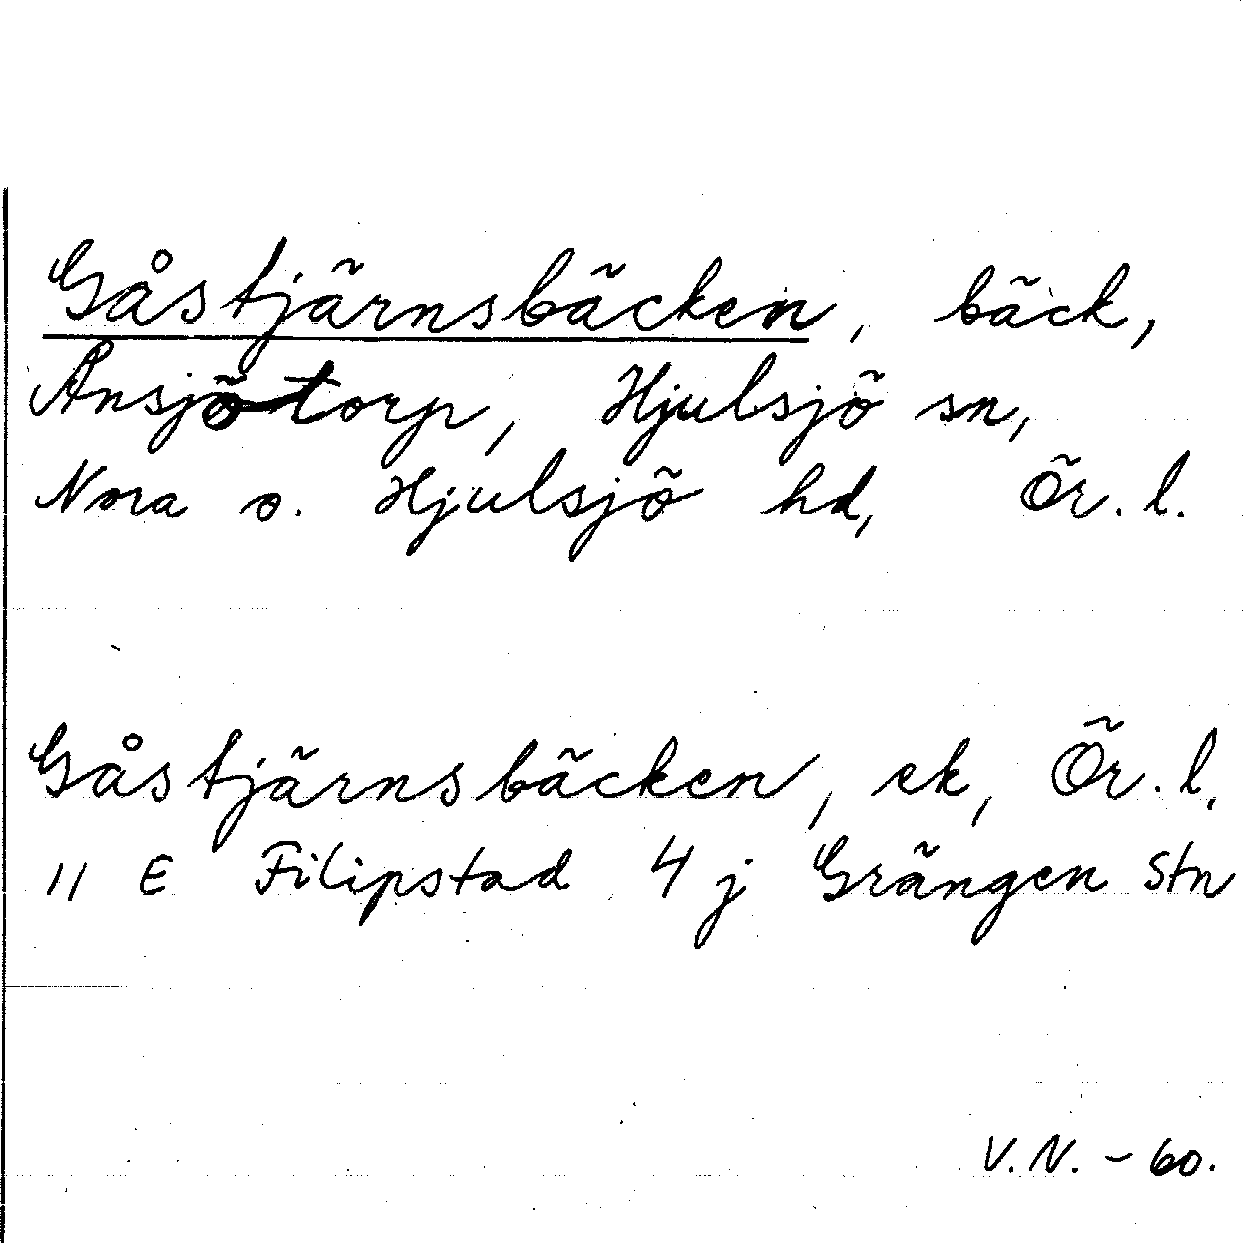 Gåstjärnsbäcken, bäck,
Ånsjötorp, Hjulsjö sn,
Nora o. Hjulsjö hd, Ör. l.
Gåstjärnsbäcken, ek, Ör. l.
11 E Filipstad 4 j Grängen stn
V. N. - 60.